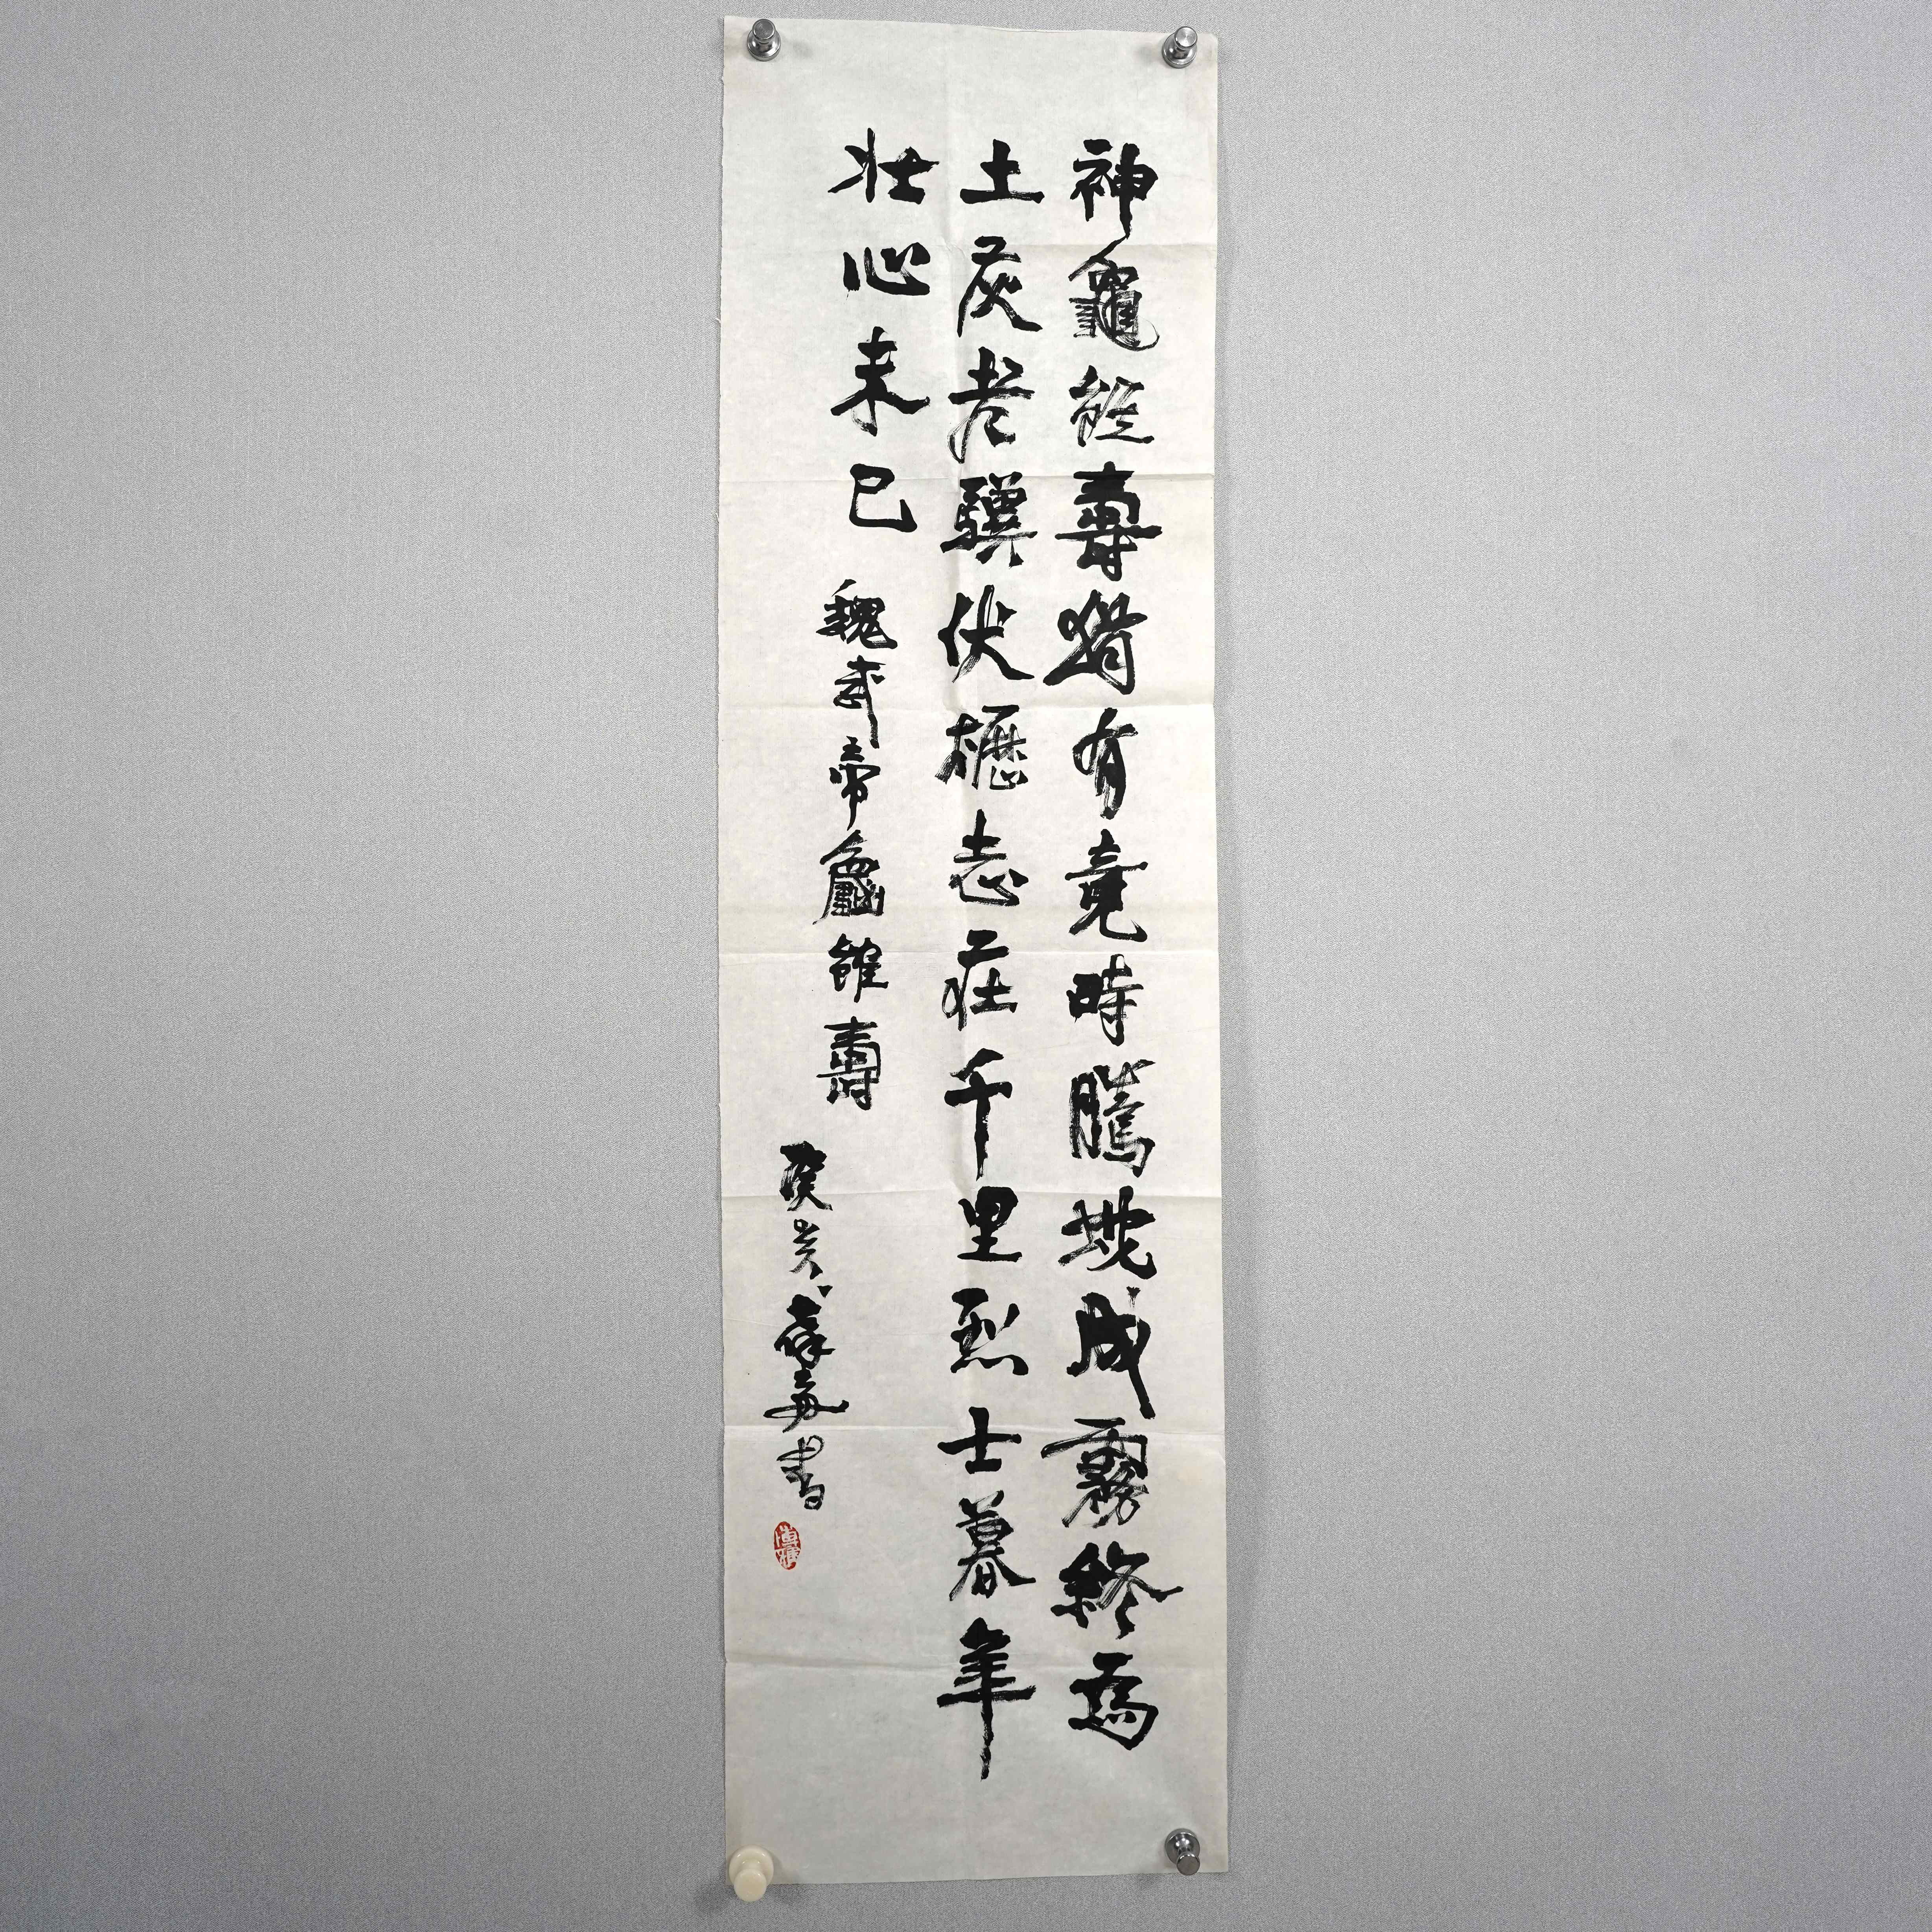 神龜雖壽猶有竟時騰虵成霧終為
土灰老驥伏櫪志在千里烈士暮年
壯心未已
魏武帝龜雖壽
癸亥
書